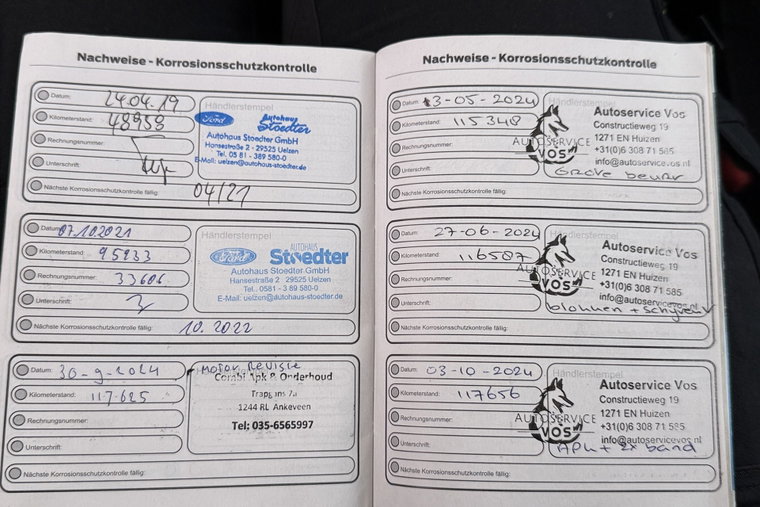 Nachweise - Korrosionsschutzkontrolle
Datum: 24.04.19
Kilometerstand: 48958
Rechnungsnummer:
Unterschrift:
Nächste Korrosionsschutzkontrolle fällig: 04/21
Händlerstempel
Ford Autohaus Stoedter
Autohaus Stoedter GmbH
Hansestraße 2 - 29525 Uelzen
Tel. 05 81 - 389 580-0
E-Mail: uelzen@autohaus-stoedter.de
Datum: 07.10.2021
Kilometerstand: 95233
Rechnungsnummer: 33686
Unterschrift:
Nächste Korrosionsschutzkontrolle fällig: 10.2022
Händlerstempel
Ford AUTOHAUS Stoedter
Autohaus Stoedter GmbH
Hansestraße 2 29525 Uelzen
Tel. 0581 - 3 89 580-0
E-Mail: uelzen@autohaus-stoedter.de
Datum: 30-9-2024
Kilometerstand: 117.625
Rechnungsnummer:
Unterschrift:
Nächste Korrosionsschutzkontrolle fällig:
Motor Revisie
Combi Apk & Onderhoud
1244 RL Ankeveen
Tel; 035-6565997
Nachweise - Korrosionsschutzkontrolle
Datum: 13-05-2024
Kilometerstand: 115348
Rechnungsnummer:
Unterschrift:
Nächste Korrosionsschutzkontrolle fällig:
Händlerstempel
AUTOSERVICE VOS
Autoservice Vos
Constructieweg 19
1271 EN Huizen
+31(0)6 308 71 585
info@autoservicevos.nl
Grote beurt
Datum: 27-06-2024
Kilometerstand: 116587
Rechnungsnummer:
Unterschrift:
Nächste Korrosionsschutzkontrolle fällig:
Händlerstempel
AUTOSERVICE VOS
Autoservice Vos
Constructieweg 19
1271 EN Huizen
+31(0)6 308 71 585
info@autoservicevos.nl
blokken + schijven
Datum: 03-10-2024
Kilometerstand: 117656
Rechnungsnummer:
Unterschrift:
Nächste Korrosionsschutzkontrolle fällig:
Händlerstempel
AUTOSERVICE VOS
Autoservice Vos
Constructieweg 19
1271 EN Huizen
+31(0)6 308 71 585
info@autoservicevos.nl
APK + 2x band